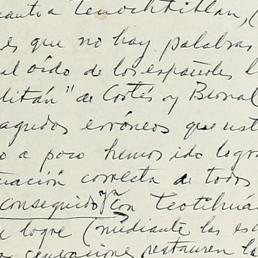 cuanto a Tenochtitlan, (
es que no hay palabras
al oído de los españoles l
litán" de Cortés y Bernal
agudos erróneos que ust
o a poco hemos ido logra
uación correcta de todos
conseguido con Teotihuá
e logre (mediante las es
generaciones restauren la